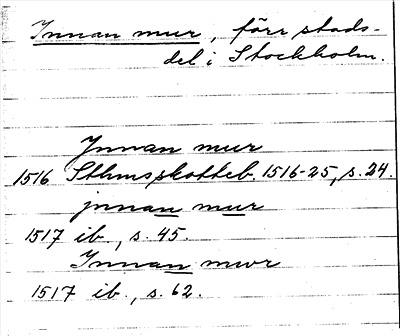 Innan mur, förr stads-
del i Stockholm.
Jnnan mur
1516 Sthms skotteb. 1516-25, s. 24.
jnnan mur
1517 ib., s. 45.
Innan mwr
1517 ib., s. 62.